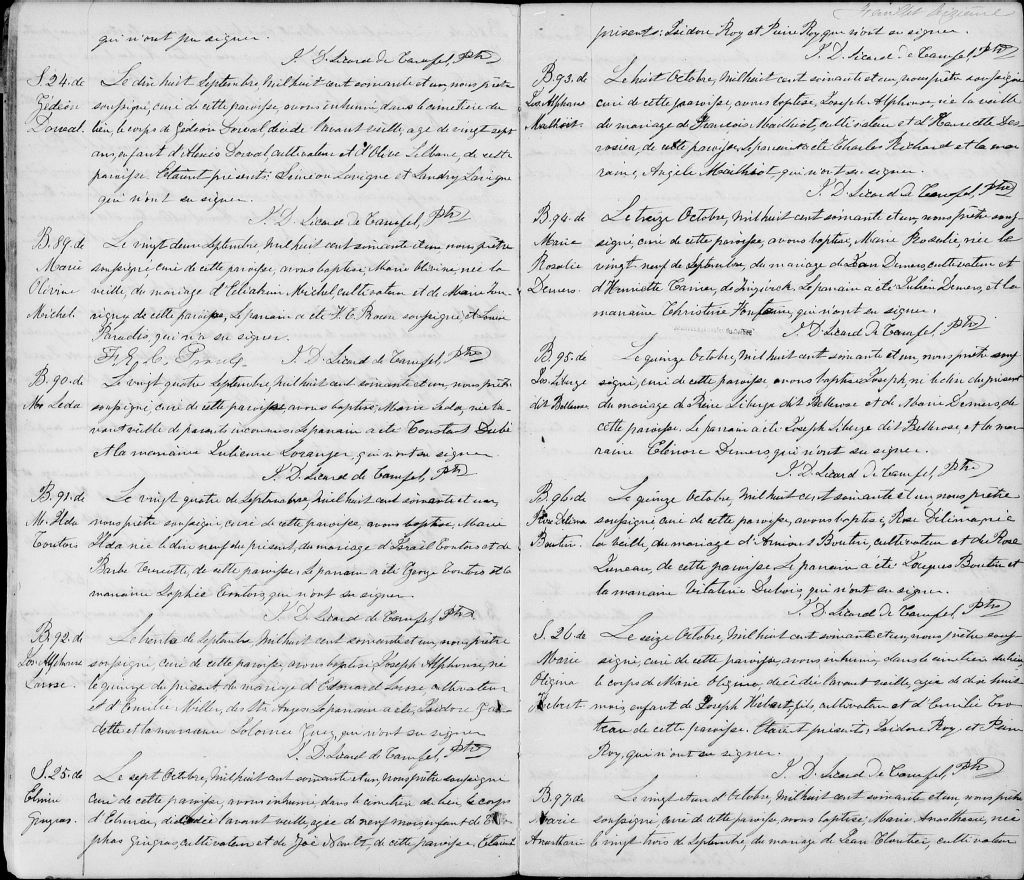 qui n'ont pu signer.
J. D. Sicard de Carufel, Ptre
S. 24. de
Gédéon
Dorval.
Le dix huit Septembre, mil huit cent soixante et un, nous prêtre
soussigné, curé de cette paroisse, avons inhumé, dans le cimetière du
lieu, le corps de Gédéon Dorval, décédé l'avant veille, agé de vingt sept
ans, enfant d'Alexis Dorval cultivateur et d'Olive Leblanc, de cette
paroisse. Etaient présents: Siméon Lavigne et Landry Lavigne
qui n'ont su signer.
J. D. Sicard de Carufel, Ptre
B. 89. de
Marie
Olivine
Michel.
Le vingt deux Septembre mil huit cent soixante et un, nous prêtre
soussigné, curé de cette paroisse, avons baptisé, Marie Olivine, née la
veille, du mariage d'Eliakim Michel, cultivateur et de Marie
de cette paroisse, Le parrain a été soussigné et Louise
Paradis, qui n'a su signer.
J. D. Sicard de Carufel, Ptre
B. 90. de
Mie Léda
Le vingt quatre Septembre, mil huit cent soixante et un, nous prêtre
soussigné, curé de cette paroisse, avons baptisé, Marie Léda, née l'a-
vant veille de parents inconnus. Le parrain a été Constant Dubé
et la marraine Julienne Loranger, qui n'ont su signer.
J. D. Sicard de Carufel, Ptre
B. 91. de
Mie Ilda
Toutois
Le vingt quatre de Septembre, mil huit cent soixante et un,
nous prêtre soussigné, curé de cette paroisse, avons baptisé, Marie
Ilda née le dix neuf du présent, du mariage d'Israël Toutois et de
Barbe Turcotte, de cette paroisse. Le parrain a été George Toutois et la
marraine Sophie Toutois, qui n'ont su signer.
J. D. Sicard de Carufel, Ptre
B. 92. de
Jos Alphonse
Larose.
Le trente de Septembre, mil huit cent soixante et un, nous prêtre
soussigné, curé de cette paroisse, avons baptisé, Joseph Alphonse, né
le quinze du présent, du mariage d'Edouard cultivateur
et d'Emilie Miller, des Sts Anges. Le parrain a été, Isidore
et la marraine qui n'ont su signer
J. D. Sicard de Carufel, Ptre
S. 25. de
Elmire
Gingras.
Le sept Octobre, mil huit cent soixante et un, nous prêtre soussigné
curé de cette paroisse, avons inhumé, dans le cimetière du lieu, le corps
d'Elmire, décédée l'avant veille, agée de neuf mois enfant de
Gingras, cultivateur et de Zoé Nault, de cette paroisse, Etaient
Feuillet dixième
présents: Isidore Roy et Pierre Roy qui n'ont su signer.
J. D. Sicard de Carufel, Ptre
B. 93. de
Jos. Alphonse
Mailhiot.
Le huit Octobre, mil huit cent soixante et un, nous prêtre soussigné
curé de cette paroisse, avons baptisé, Joseph Alphonse, né la veille
du mariage de François Mailhiot, cultivateur et d'Henriette Des-
rosiers, de cette paroisse. Le parrain a été Charles Richard et la mar-
raine, Angèle Mailhiot qui n'ont su signer.
J. D. Sicard de Carufel, Ptre
B. 94. de
Marie
Rosalie
Demers.
Le treize Octobre, mil huit cent soixante et un, nous prêtre sous-
signé, curé de cette paroisse, avons baptisé, Marie Rosalie, née le
vingt neuf de Septembre, du mariage de Jean Demers, cultivateur et
d'Henriette Carrier, de Le parrain a été Julien Demers, et la
marraine Christine Fontaine, qui n'ont su signer.
J. D. Sicard de Carufel, Ptre
B. 95. de
Jos. Liberge
dit Bellerose
Le quinze Octobre, mil huit cent soixante et un, nous prêtre sous-
signé, curé de cette paroisse, avons baptisé Joseph, né le dix du présent
du mariage de Pierre Liberge dit Bellerose et de Marie Demers, de
cette paroisse. Le parrain a été Joseph Liberge dit Bellerose, et la mar-
raine Elénore Demers qui n'ont su signer.
J. D. Sicard de Carufel, Ptre
B. 96. de
Rose Délima
Boutin.
Le quinze Octobre, mil huit cent soixante et un, nous prêtre
soussigné, curé de cette paroisse, avons baptisé, Rose Délima, née
la veille, du mariage d'Boutin, cultivateur et de Rose
Juneau, de cette paroisse. Le parrain a été Jacques Boutin et
la marraine Vitaline Dubois qui n'ont su signer.
J. D. Sicard de Carufel, Ptre
S. 26 de
Marie
Olézina
Hébert
Le seize Octobre, mil huit cent soixante et un, nous prêtre sous-
signé, curé de cette paroisse, avons inhumé, dans le cimetière du lieu
le corps de Marie Olézine, décédée l'avant veille, agée de dix huit
mois, enfant de Joseph Hébert, fils cultivateur et d'Emilie Cro-
teau de cette paroisse. Etaient présents, Isidore Roy et Pierre
Roy, qui n'ont su signer.
J. D. Sicard de Carufel, Ptre
B. 97. de
Marie
Anasthasie
Le vingt et un d'Octobre, mil huit cent soixante et un, nous prêtre
soussigné, curé de cette paroisse, avons baptisé, Marie Anasthasie, née
le vingt trois de Septembre, du mariage de Jean Cloutier, cultivateur